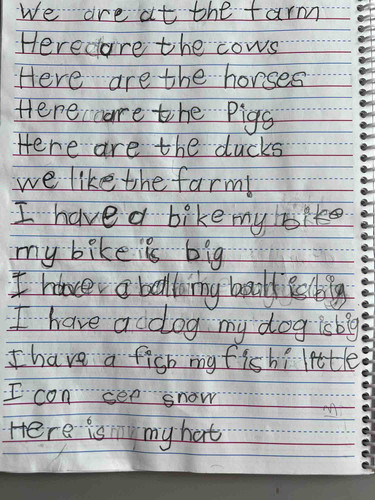 We are at the farm
Here are the cows
Here are the horses
Here are the Pigs
Here are the ducks
we like the farm!
I have a bike my bike
my bike is big
I have a ball my ball is big
I have a dog my dog is big
I have a fish my fish i little
I can see snow
Here is my hat